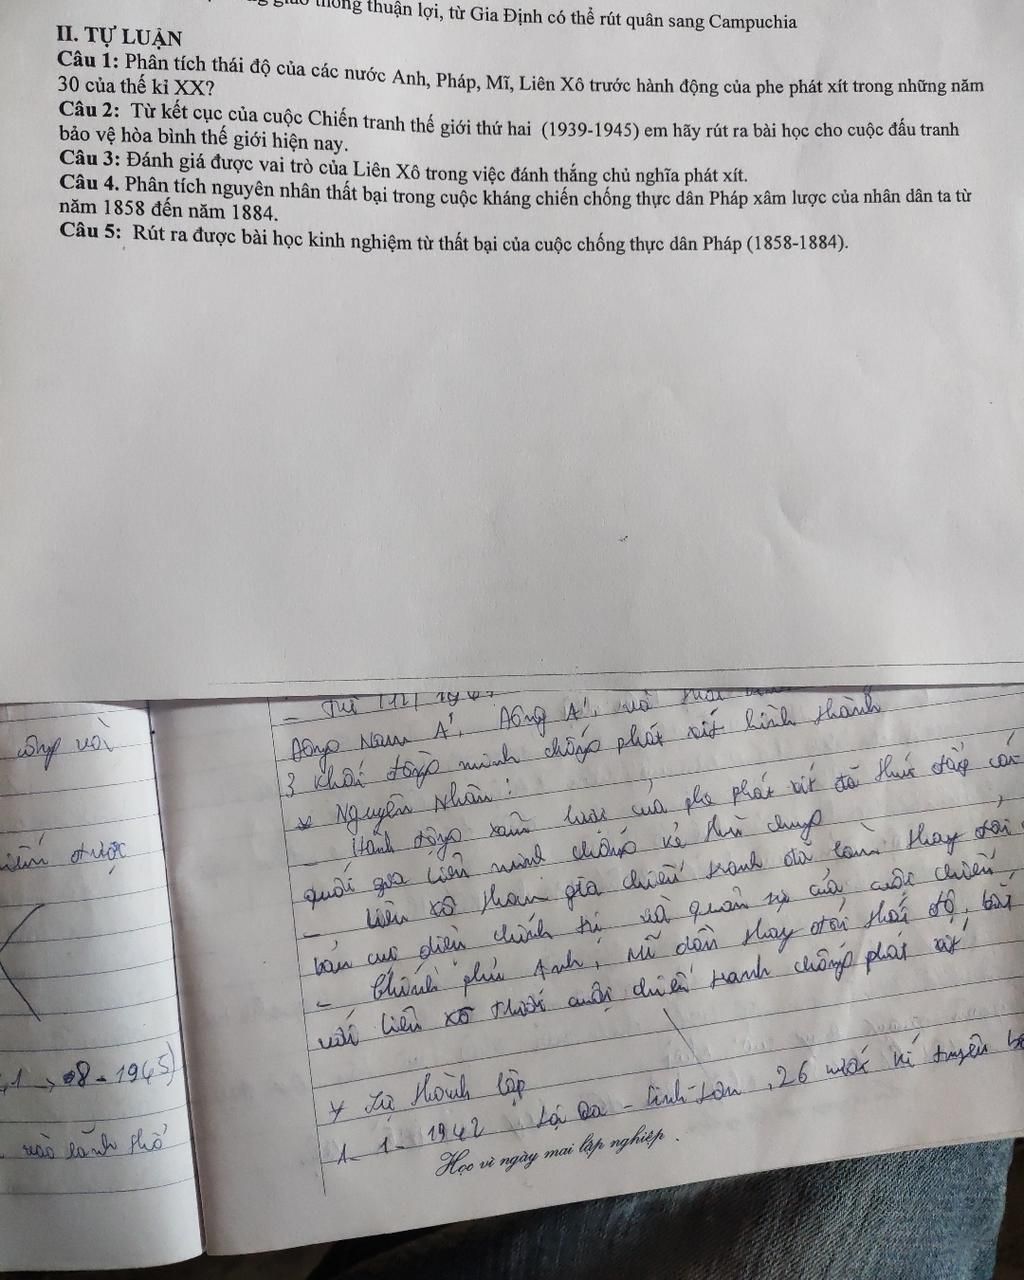 thông thuận lợi, từ Gia Định có thể rút quân sang Campuchia
II. TỰ LUẬN
Câu 1: Phân tích thái độ của các nước Anh, Pháp, Mĩ, Liên Xô trước hành động của phe phát xít trong những năm
30 của thế kỉ XX?
Câu 2: Từ kết cục của cuộc Chiến tranh thế giới thứ hai (1939-1945) em hãy rút ra bài học cho cuộc đấu tranh
bảo vệ hòa bình thế giới hiện nay.
Câu 3: Đánh giá được vai trò của Liên Xô trong việc đánh thắng chủ nghĩa phát xít.
Câu 4. Phân tích nguyên nhân thất bại trong cuộc kháng chiến chống thực dân Pháp xâm lược của nhân dân ta từ
năm 1858 đến năm 1884.
Câu 5: Rút ra được bài học kinh nghiệm từ thất bại của cuộc chống thực dân Pháp (1858-1884).
Đông Nam Á, Đông Á, và
3 khối đồng minh chống phát xít hình thành
* Nguyên nhân:
- Hành động xâm lược của phe phát xít đã thúc đẩy các
quốc gia liên minh chống kẻ thù chung
- Liên xô tham gia chiến tranh đã làm thay đổi
bản cục diện chính trị và quân sự của cuộc chiến
- Chính phủ Anh, Mĩ dần thay đổi thái độ, bắt
với liên xô trong cuộc chiến tranh chống phát xít
* Sự thành lập
1 - 1 - 1942 tại Oa - Sinh-tơn, 26 nước kí tuyên
Học vì ngày mai lập nghiệp.
công với
được
1 → 08 - 1945)
vào lãnh thổ